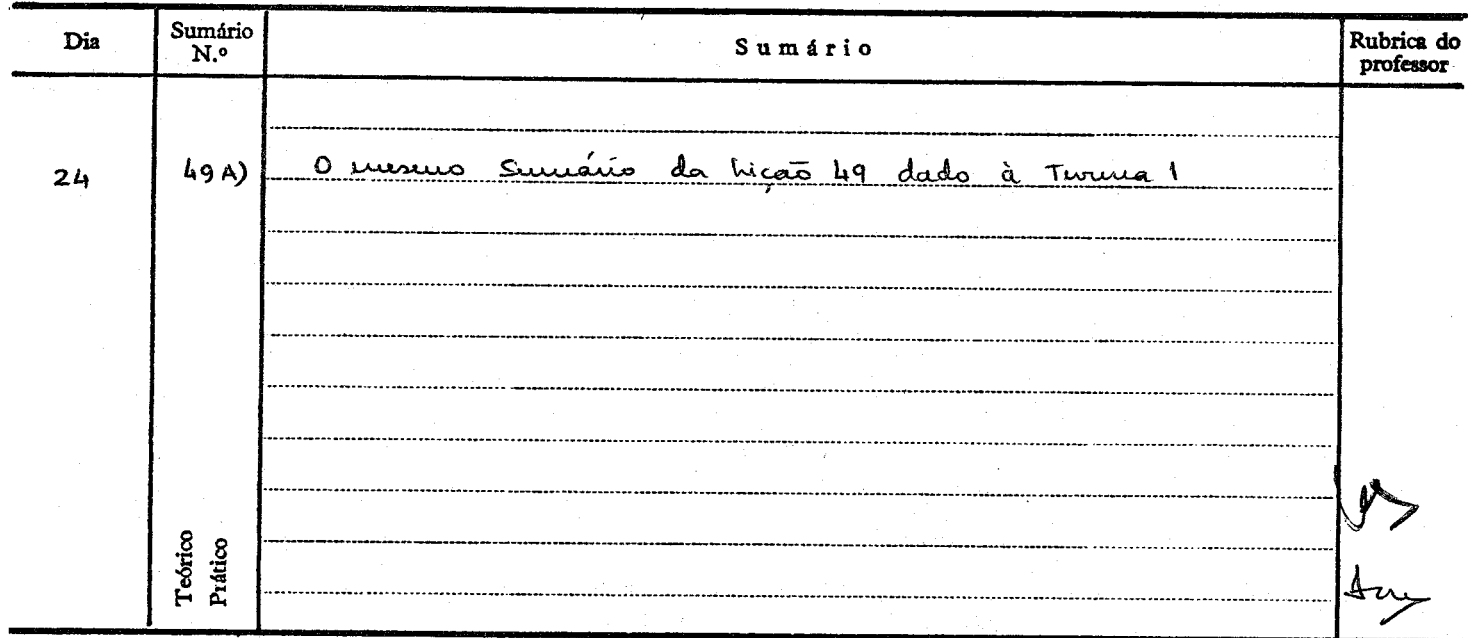 Dia
Sumário
N.º
Sumário
Rubrica do
professor
24
49A)
O mesmo Sumário da Lição 49 dado à Turma 1
Teórico
Prático